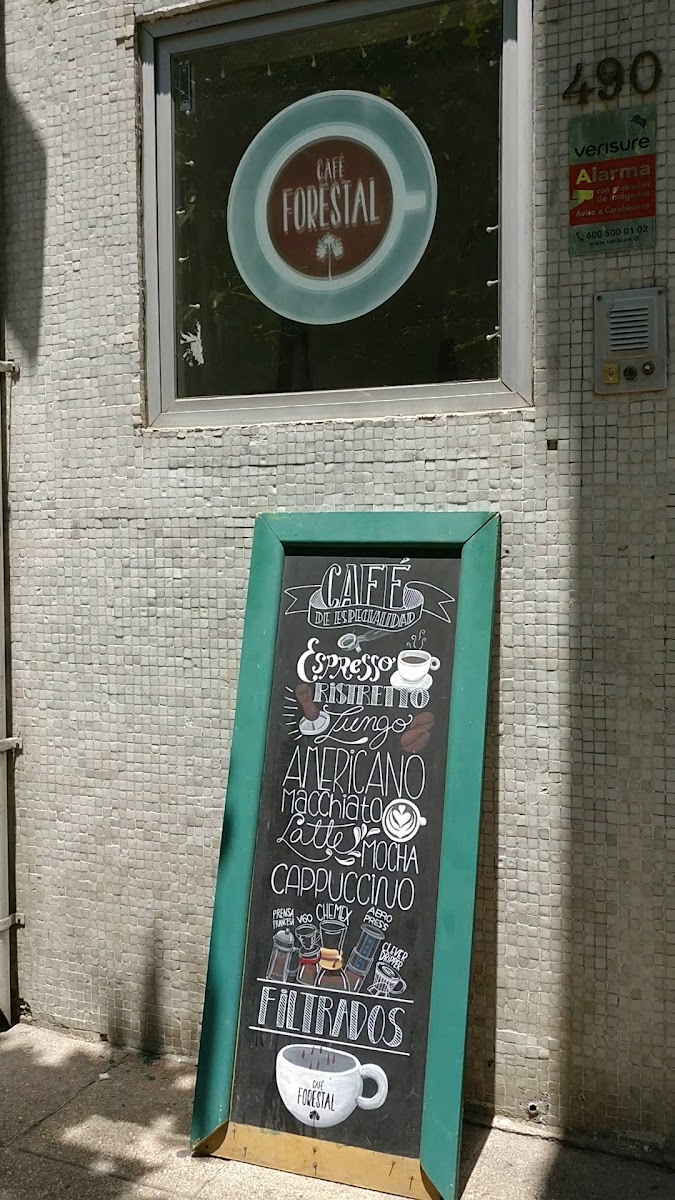 CAFÉ
FORESTAL
490
verisure
Alarma
con grabación
de imágenes
Aviso a Carabineros
600 500 01 02
www.verisure.cl
CAFÉ
DE ESPECIALIDAD
Espresso
RISTRETTO
Lungo
AMERICANO
Macchiato
Latte
MOCHA
CAPPUCCINO
PRENSA
FRANCESA
V60
CHEMEX
AERO
PRESS
CLEVER
DRIPPER
FILTRADOS
CAFÉ
FORESTAL